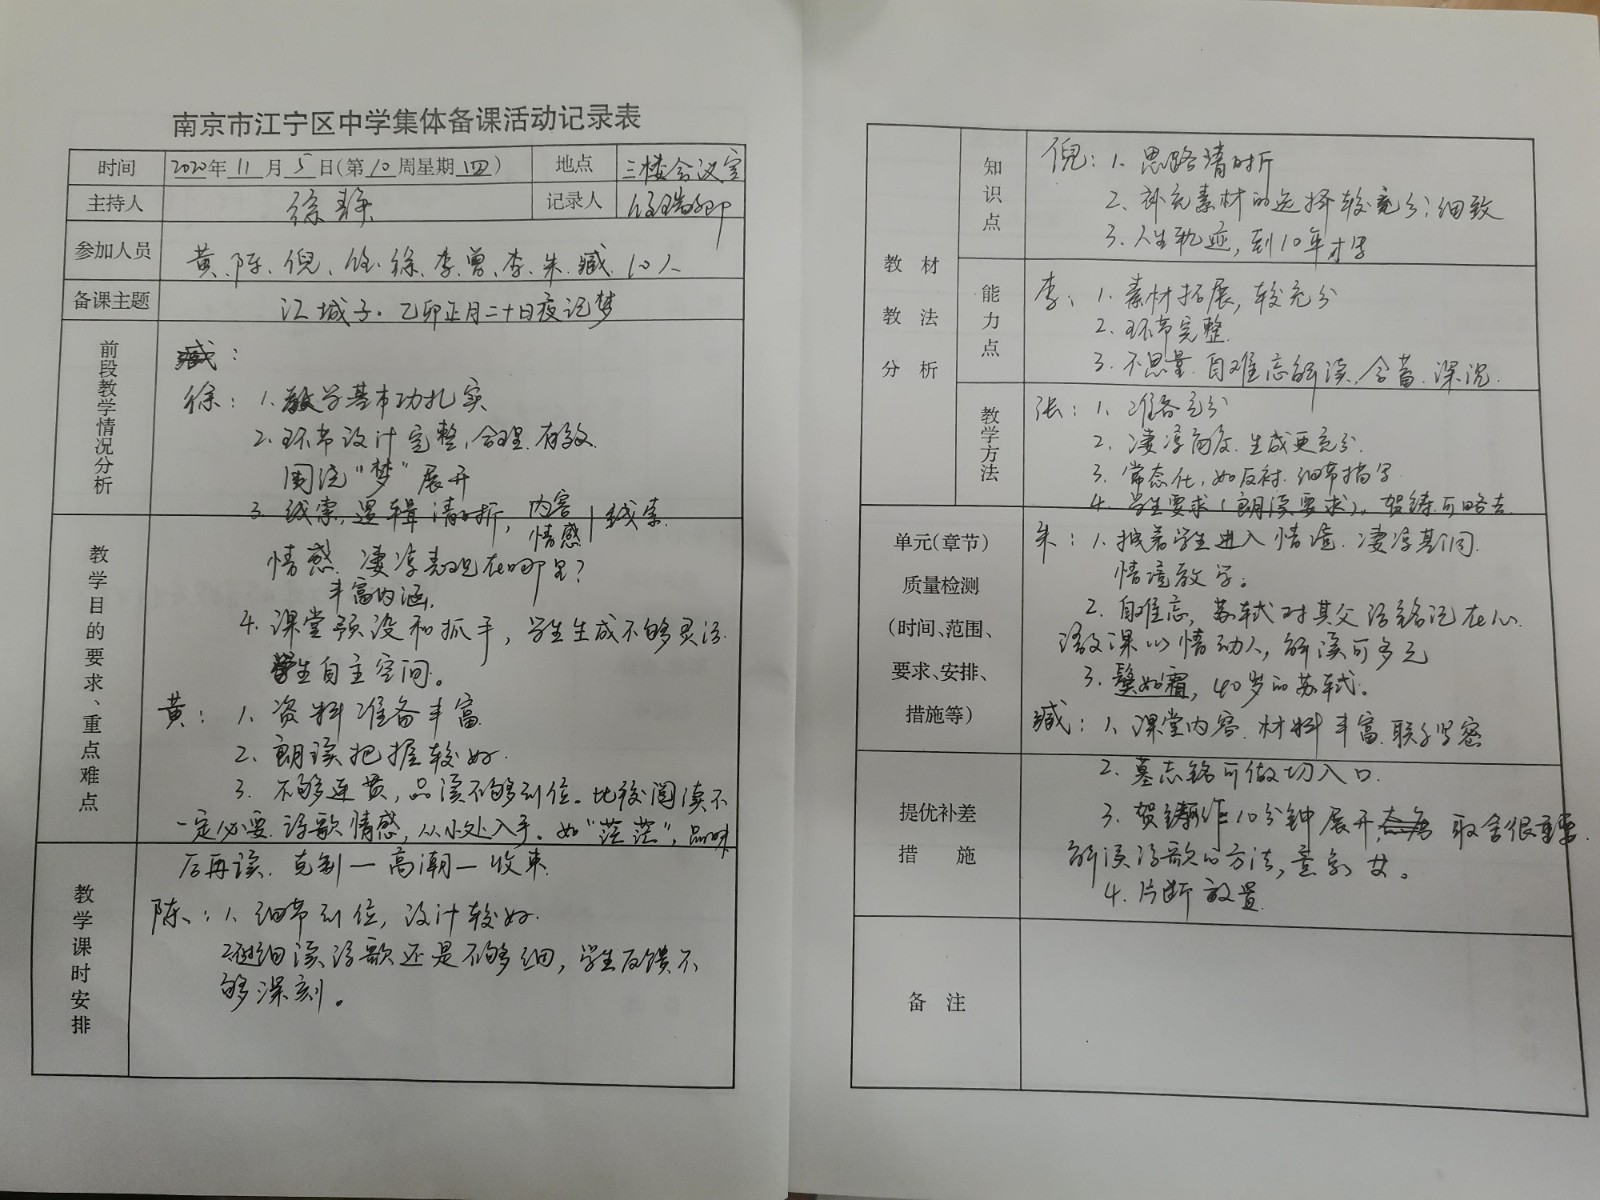 南京市江宁区中学集体备课活动记录表
时间 2020年 11 月 5 日(第 10 周星期 四) 地点 三楼会议室
主持人 徐静 记录人
参加人员 黄、陈、倪、徐、李、曾、李、朱、臧 10人
备课主题 江城子·乙卯正月二十日夜记梦
前段教学情况分析
臧:
徐: 1. 教学基本功扎实
2. 环节设计完整,合理.有效.
围绕“梦”展开
3. 线索,逻辑清晰, 内容 情感 | 线索.
情感. 凄凉表现在哪里?
丰富内涵.
4. 课堂预设和抓手,学生生成不够灵活.
学生自主空间。
教学目的要求、重点难点
黄: 1. 资料准备丰富
2. 朗读把握较好.
3. 不够连贯,品读不够到位。比较阅读不
一定必要. 诗歌情感,从小处入手。如“茫茫”,品味
后再读. 克制—高潮—收束
教学课时安排
陈: 1. 细节到位,设计较好.
2. 细读诗歌还是不够细,学生反馈不
够深刻。
教材教法分析
知识点
倪: 1. 思路清晰
2. 补充素材的选择较充分;细致
3. 人生轨迹,到10年才写
能力点
李: 1. 素材拓展,较充分
2. 环节完整.
3. 不思量.自难忘解读,含蓄.深沉.
教学方法
张: 1. 准备充分
2. 凄凉 生成更充分.
3. 常态化,如反衬.细节描写.
4. 学生要求(朗读要求),贺铸可略去.
单元(章节)
质量检测
(时间、范围、
要求、安排、
措施等)
朱: 1. 学生进入情境.凄凉
情境教学。
2. 自难忘,苏轼对其父话铭记在心.
语文课以情动人,解读可多元
3. 鬓如霜,40岁的苏轼。
臧: 1. 课堂内容.材料丰富.联系紧密
2. 墓志铭可做切入口.
提优补差
措 施
3. 贺铸 10分钟展开, 取舍很重要.
解读诗歌的方法,意象
4. 片断放置
备 注